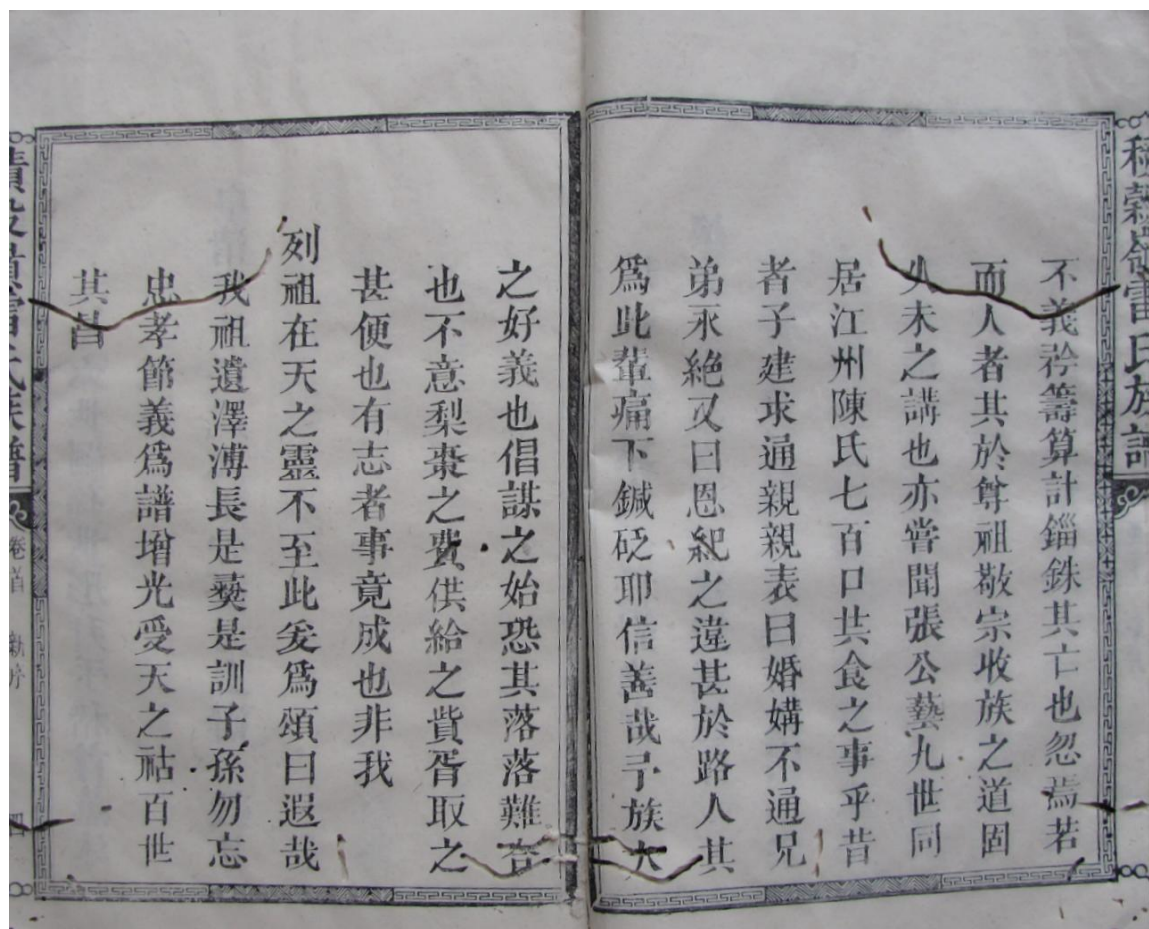 積穀嶺雷氏族譜
不義矜籌算計錙銖其亡也忽焉若
而人者其於尊祖敬宗收族之道固
久未之講也亦嘗聞張公藝九世同
居江州陳氏七百口共食之事乎昔
者子建求通親親表曰婚媾不通兄
弟永絕又曰恩紀之違甚於路人其
爲此輩痛下鍼砭耶信善哉予族大
之好義也倡謀之始恐其落落難合
也不意梨棗之費供給之貲胥取之
甚便也有志者事竟成也非我
列祖在天之靈不至此爰爲頌曰遐哉
我祖遺澤溥長是彝是訓子孫勿忘
忠孝節義爲譜增光受天之祜百世
其昌
積穀嶺雷氏族譜
卷首
新序
四